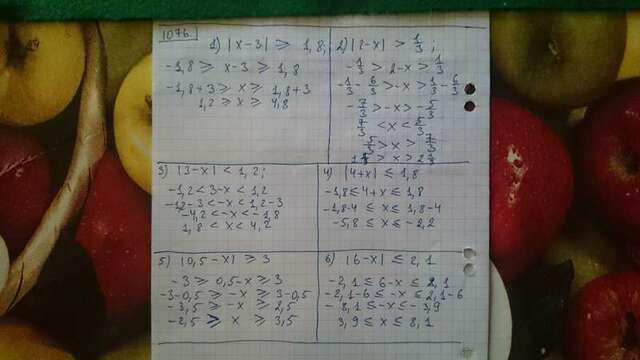 1076
1) |x-3| ⩾ 1,8;
-1,8 ⩾ x-3 ⩾ 1,8
-1,8+3 ⩾ x ⩾ 1,8+3
1,2 ⩾ x ⩾ 4,8
2) |2-x| > 1/3;
-1/3 > 2-x > 1/3
-1/3 - 6/3 > -x > 1/3 - 6/3
-7/3 > -x > -5/3
7/3 < x < 5/3
5/3 > x > 7/3
3) |3-x| < 1,2;
-1,2 < 3-x < 1,2
-1,2-3 < -x < 1,2-3
-4,2 < -x < -1,8
1,8 < x < 4,2
4) |4+x| ⩽ 1,8
-1,8 ⩽ 4+x ⩽ 1,8
-1,8-4 ⩽ x ⩽ 1,8-4
-5,8 ⩽ x ⩽ -2,2
5) |0,5-x| ⩾ 3
-3 ⩾ 0,5-x ⩾ 3
-3-0,5 ⩾ -x ⩾ 3-0,5
-3,5 ⩾ -x ⩾ 2,5
-2,5 ⩾ x ⩾ 3,5
6) |6-x| ⩽ 2,1
-2,1 ⩽ 6-x ⩽ 2,1
-2,1-6 ⩽ -x ⩽ 2,1-6
-8,1 ⩽ -x ⩽ -3,9
3,9 ⩽ x ⩽ 8,1